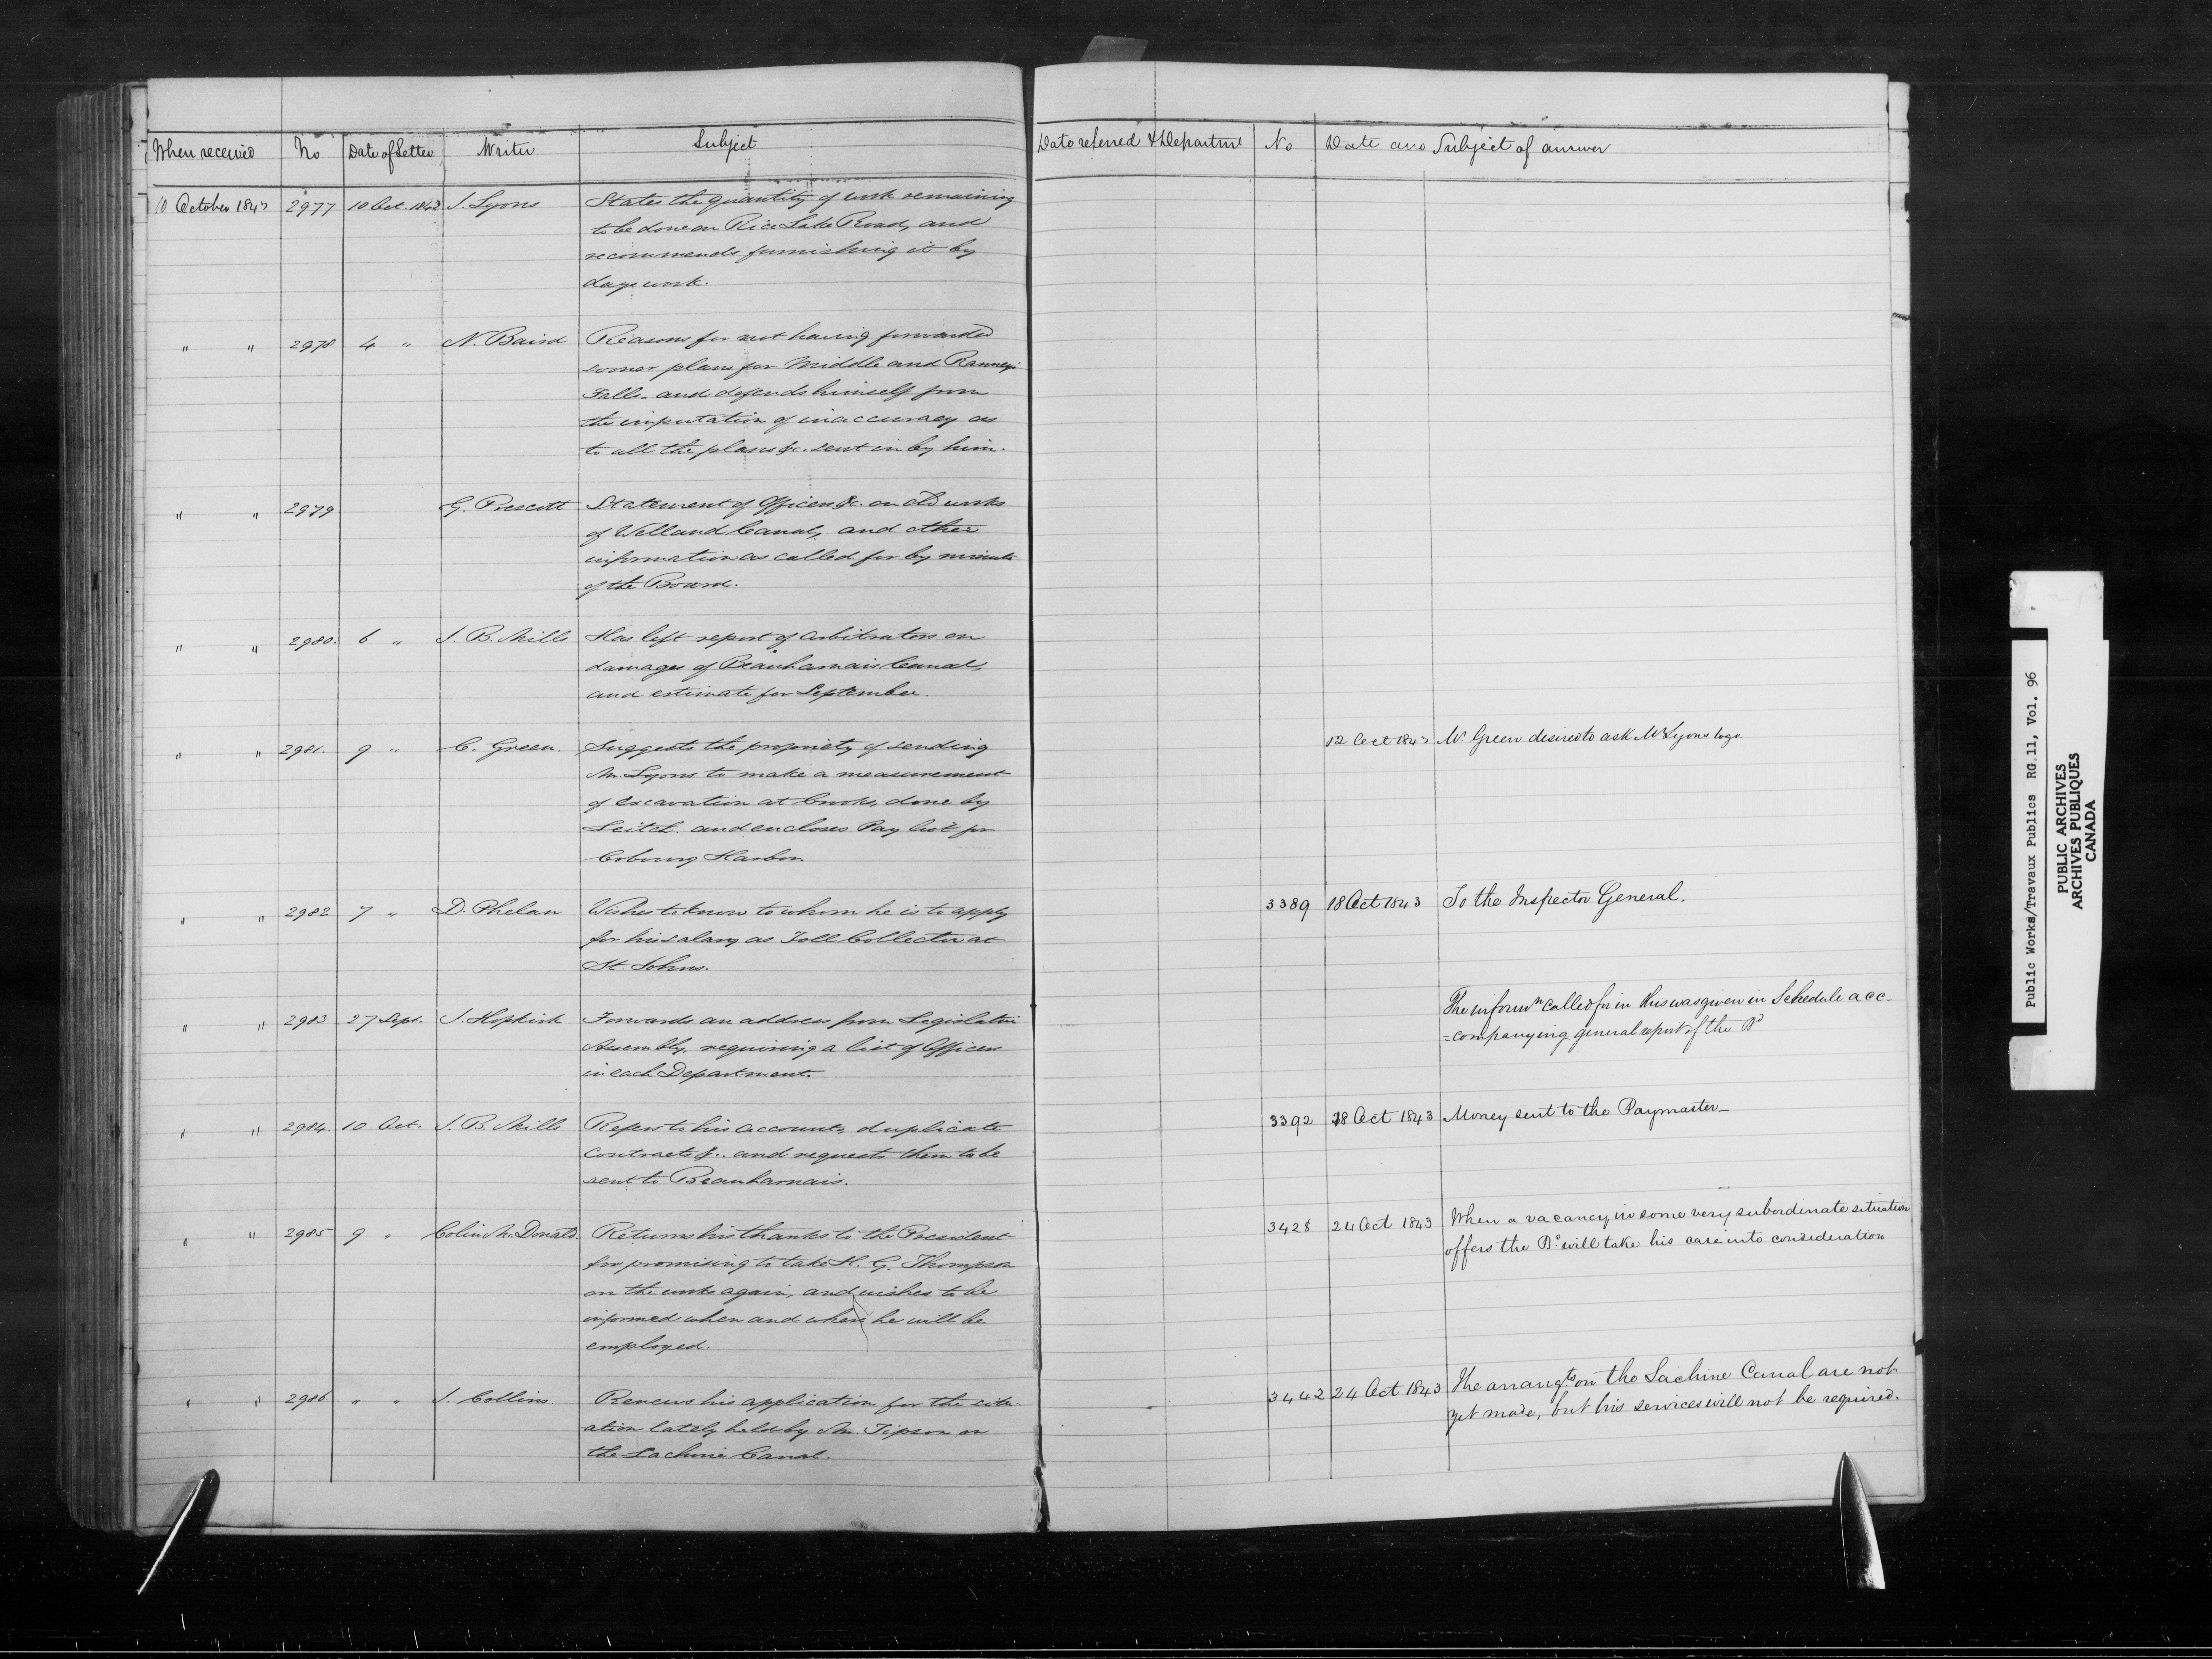 When received No Date of Letter Writer Subject
10 October 1843 2977 10 Oct. 1843 J. Lyons States the quantity of work remaining
to be done on Rice Lake Road, and
recommends furnishing it by
days work.
" " 2978 4 " N. Baird Reasons for not having forwarded
sooner plans for Middle and Ranneys
Falls - and defends himself from
the imputation of inaccuracy as
to all the plans &c. sent in by him.
" " 2979 G. Prescott Statement of Officers &c. on old works
of Welland Canal, and other
information as called for by minute
of the Board.
" " 2980. 6 " J. B. Mills Has left report of arbitrators on
damages of Beauharnais Canal,
and estimate for September.
" " 2981. 9 " C. Green. Suggests the propriety of sending
Mr. Lyons to make a measurement
of excavation at Crooks, done by
Leitch. and encloses Pay list for
Cobourg Harbor.
" " 2982 7 " D. Phelan Wishes to know to whom he is to apply
for his salary as Toll Collector at
St. Johns.
" " 2983 27 Sept. J. Hopkirk Forwards an address from Legislative
Assembly, requiring a list of Officers
in each Department.
" " 2984. 10 Oct. J. B. Mills Refers to his accounts, duplicate
contracts &c. and requests them to be
sent to Beauharnais.
" " 2985 9 " Colin McDonald. Returns his thanks to the President
for promising to take H. G. Thompson
on the works again, and wishes to be
informed when and where he will be
employed.
" " 2986. " " J. Collins. Renews his application for the situ-
ation lately held by Mr. Tipson on
the Lachine Canal.
Date referred & Department No Date and Subject of answer
12 Oct 1843 Mr. Green desired to ask Mr Lyons to go
3389 18 Oct 1843 To the Inspector General.
The informn called for in this was given in Schedule acc-
=companying general report of the Bd
3392 18 Oct 1843 Money sent to the Paymaster_
3428 24 Oct 1843 When a vacancy in some very subordinate situation
offers the Bd will take his case into consideration
3442 24 Oct 1843 The arrangts on the Lachine Canal are not
yet made, but his services will not be required.
Public Works/Travaux Publics RG 11, Vol. 96
PUBLIC ARCHIVES
ARCHIVES PUBLIQUES
CANADA